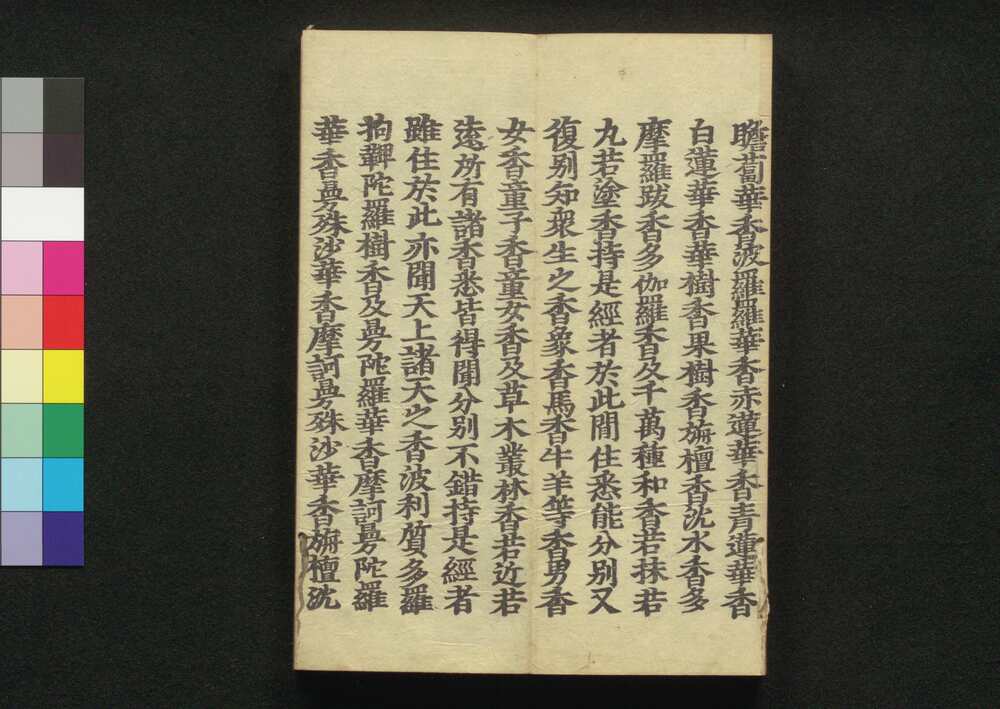 瞻蔔華香波羅羅華香赤蓮華香青蓮華香
白蓮華香華樹香果樹香栴檀香沈水香多
摩羅跋香多伽羅香及千萬種和香若抹若
丸若塗香持是經者於此間住悉能分別又
復別知衆生之香象香馬香牛羊等香男香
女香童子香童女香及草木叢林香若近若
遠所有諸香悉皆得聞分別不錯持是經者
雖住於此亦聞天上諸天之香波利質多羅
拘鞞陀羅樹香及曼陀羅華香摩訶曼陀羅
華香曼殊沙華香摩訶曼殊沙華香栴檀沈